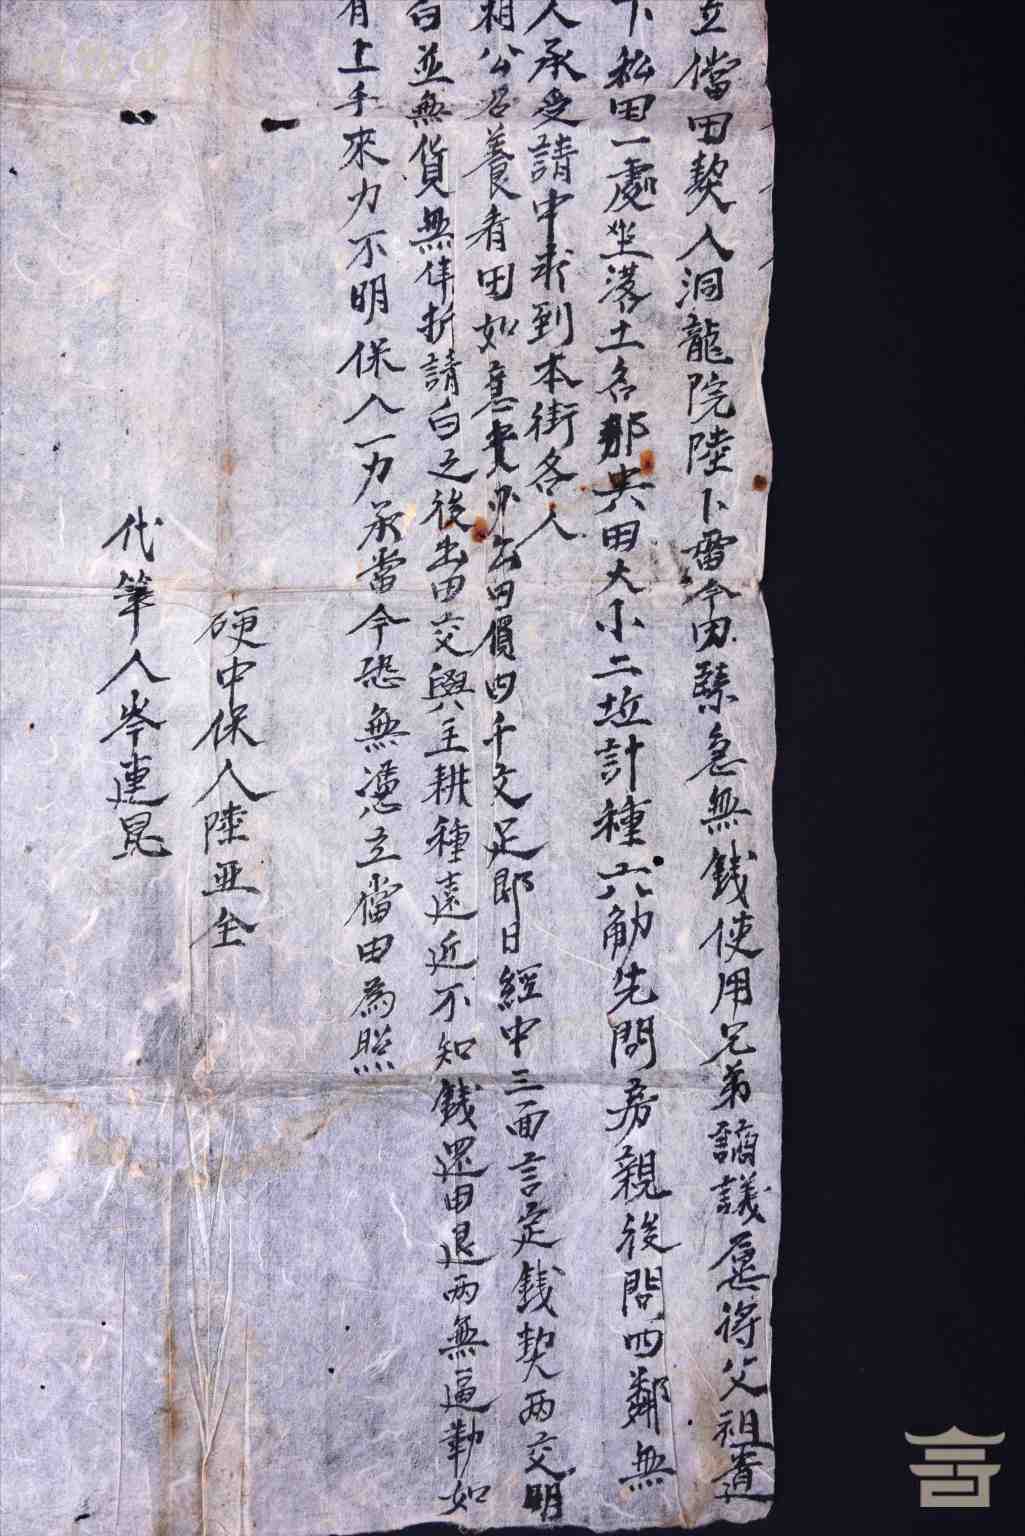 立儅田契人洞龍院陸卜雷今因緊急無錢使用兄弟謫議愿将父祖遺
下私田一處坐落土名那共田大小二坵計種六觔先問房親後問四鄰無
人承受請中求到本街各人
相公名養者田如意実办出田價四千文足即日經中三面言定錢契两交明
白並無貨無準折請白之後出田交與主耕種遠近不知錢還田退两無逼勒如
有上手來力不明保人一力承當今恐無憑立儅田為照
硬中保人陸亚全
代筆人岑連昆